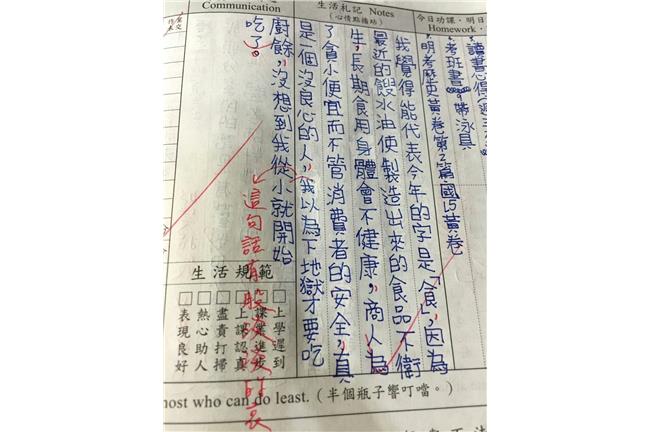 Communication
生活札記 Notes
(心情點播站)
今日功課·明日
Homework·
讀書心得(週
考班書。帶泳具
明考歷史黃卷第2篇國15黃卷
我覺得能代表今年的字是「食」,因為
最近的餿水油使製造出來的食品不衛
生,長期食用身體會不健康,商人為
了貪小便宜而不管消費者的安全,真
是一個沒良心的人,我以為下地獄才要吃
廚餘,沒想到我從小就開始
吃了。
這句話有股
生活規範
上學遲到
課業進步
上課認真
盡責打掃
熱心助人
表現良好
most who can do least.(半個瓶子響叮噹。)